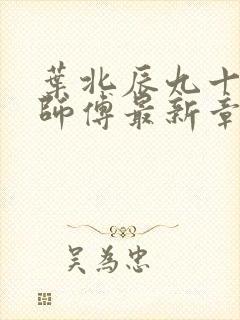 葉北辰九十
師傅最新章
吴為忠